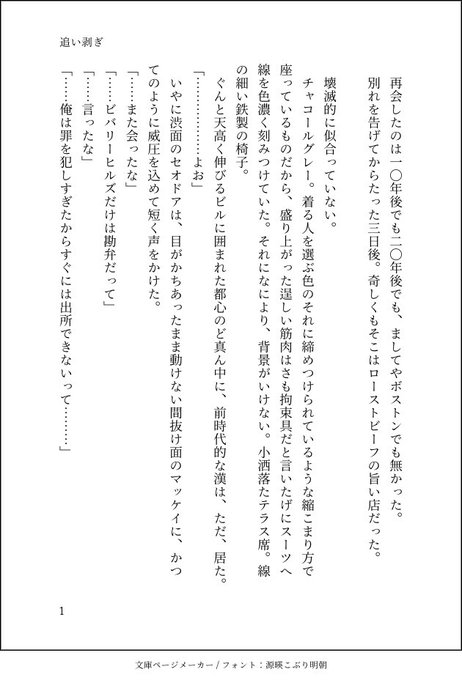 追い剥ぎ
再会したのは一〇年後でも二〇年後でも、ましてやボストンでも無かった。
別れを告げてからたった三日後。奇しくもそこはローストビーフの旨い店だった。
壊滅的に似合っていない。
チャコールグレー。着る人を選ぶ色のそれに締めつけられているような縮こまり方で
座っているものだから、盛り上がった逞しい筋肉はさも拘束具だと言いたげにスーツへ
線を色濃く刻みつけていた。それになにより、背景がいけない。小洒落たテラス席。線
の細い鉄製の椅子。
ぐんと天高く伸びるビルに囲まれた都心のど真ん中に、前時代的な漢は、ただ、居た。
「………………よお」
いやに渋面のセオドアは、目がかちあったまま動けない間抜け面のマッケイに、かつ
てのように威圧を込めて短く声をかけた。
「……また会ったな」
「……ビバリーヒルズだけは勘弁だって」
「……言ったな」
「……俺は罪を犯しすぎたからすぐには出所できないって………」
1
文庫ページメーカー / フォント：源暎こぶり明朝